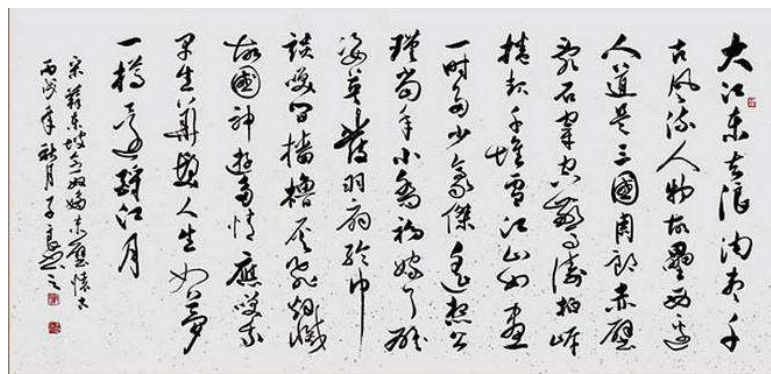 大江東去浪淘盡千
古風流人物故壘西邊
人道是三國周郎赤壁
亂石穿空驚濤拍岸
捲起千堆雪江山如畫
一時多少豪傑遙想公
瑾當年小喬初嫁了雄
姿英發羽扇綸巾
談笑間檣櫓灰飛煙滅
故國神遊多情應笑我
早生華髮人生如夢
一樽還酹江月
宋蘇東坡念奴嬌赤壁懷古
丙戌年秋月子良書之